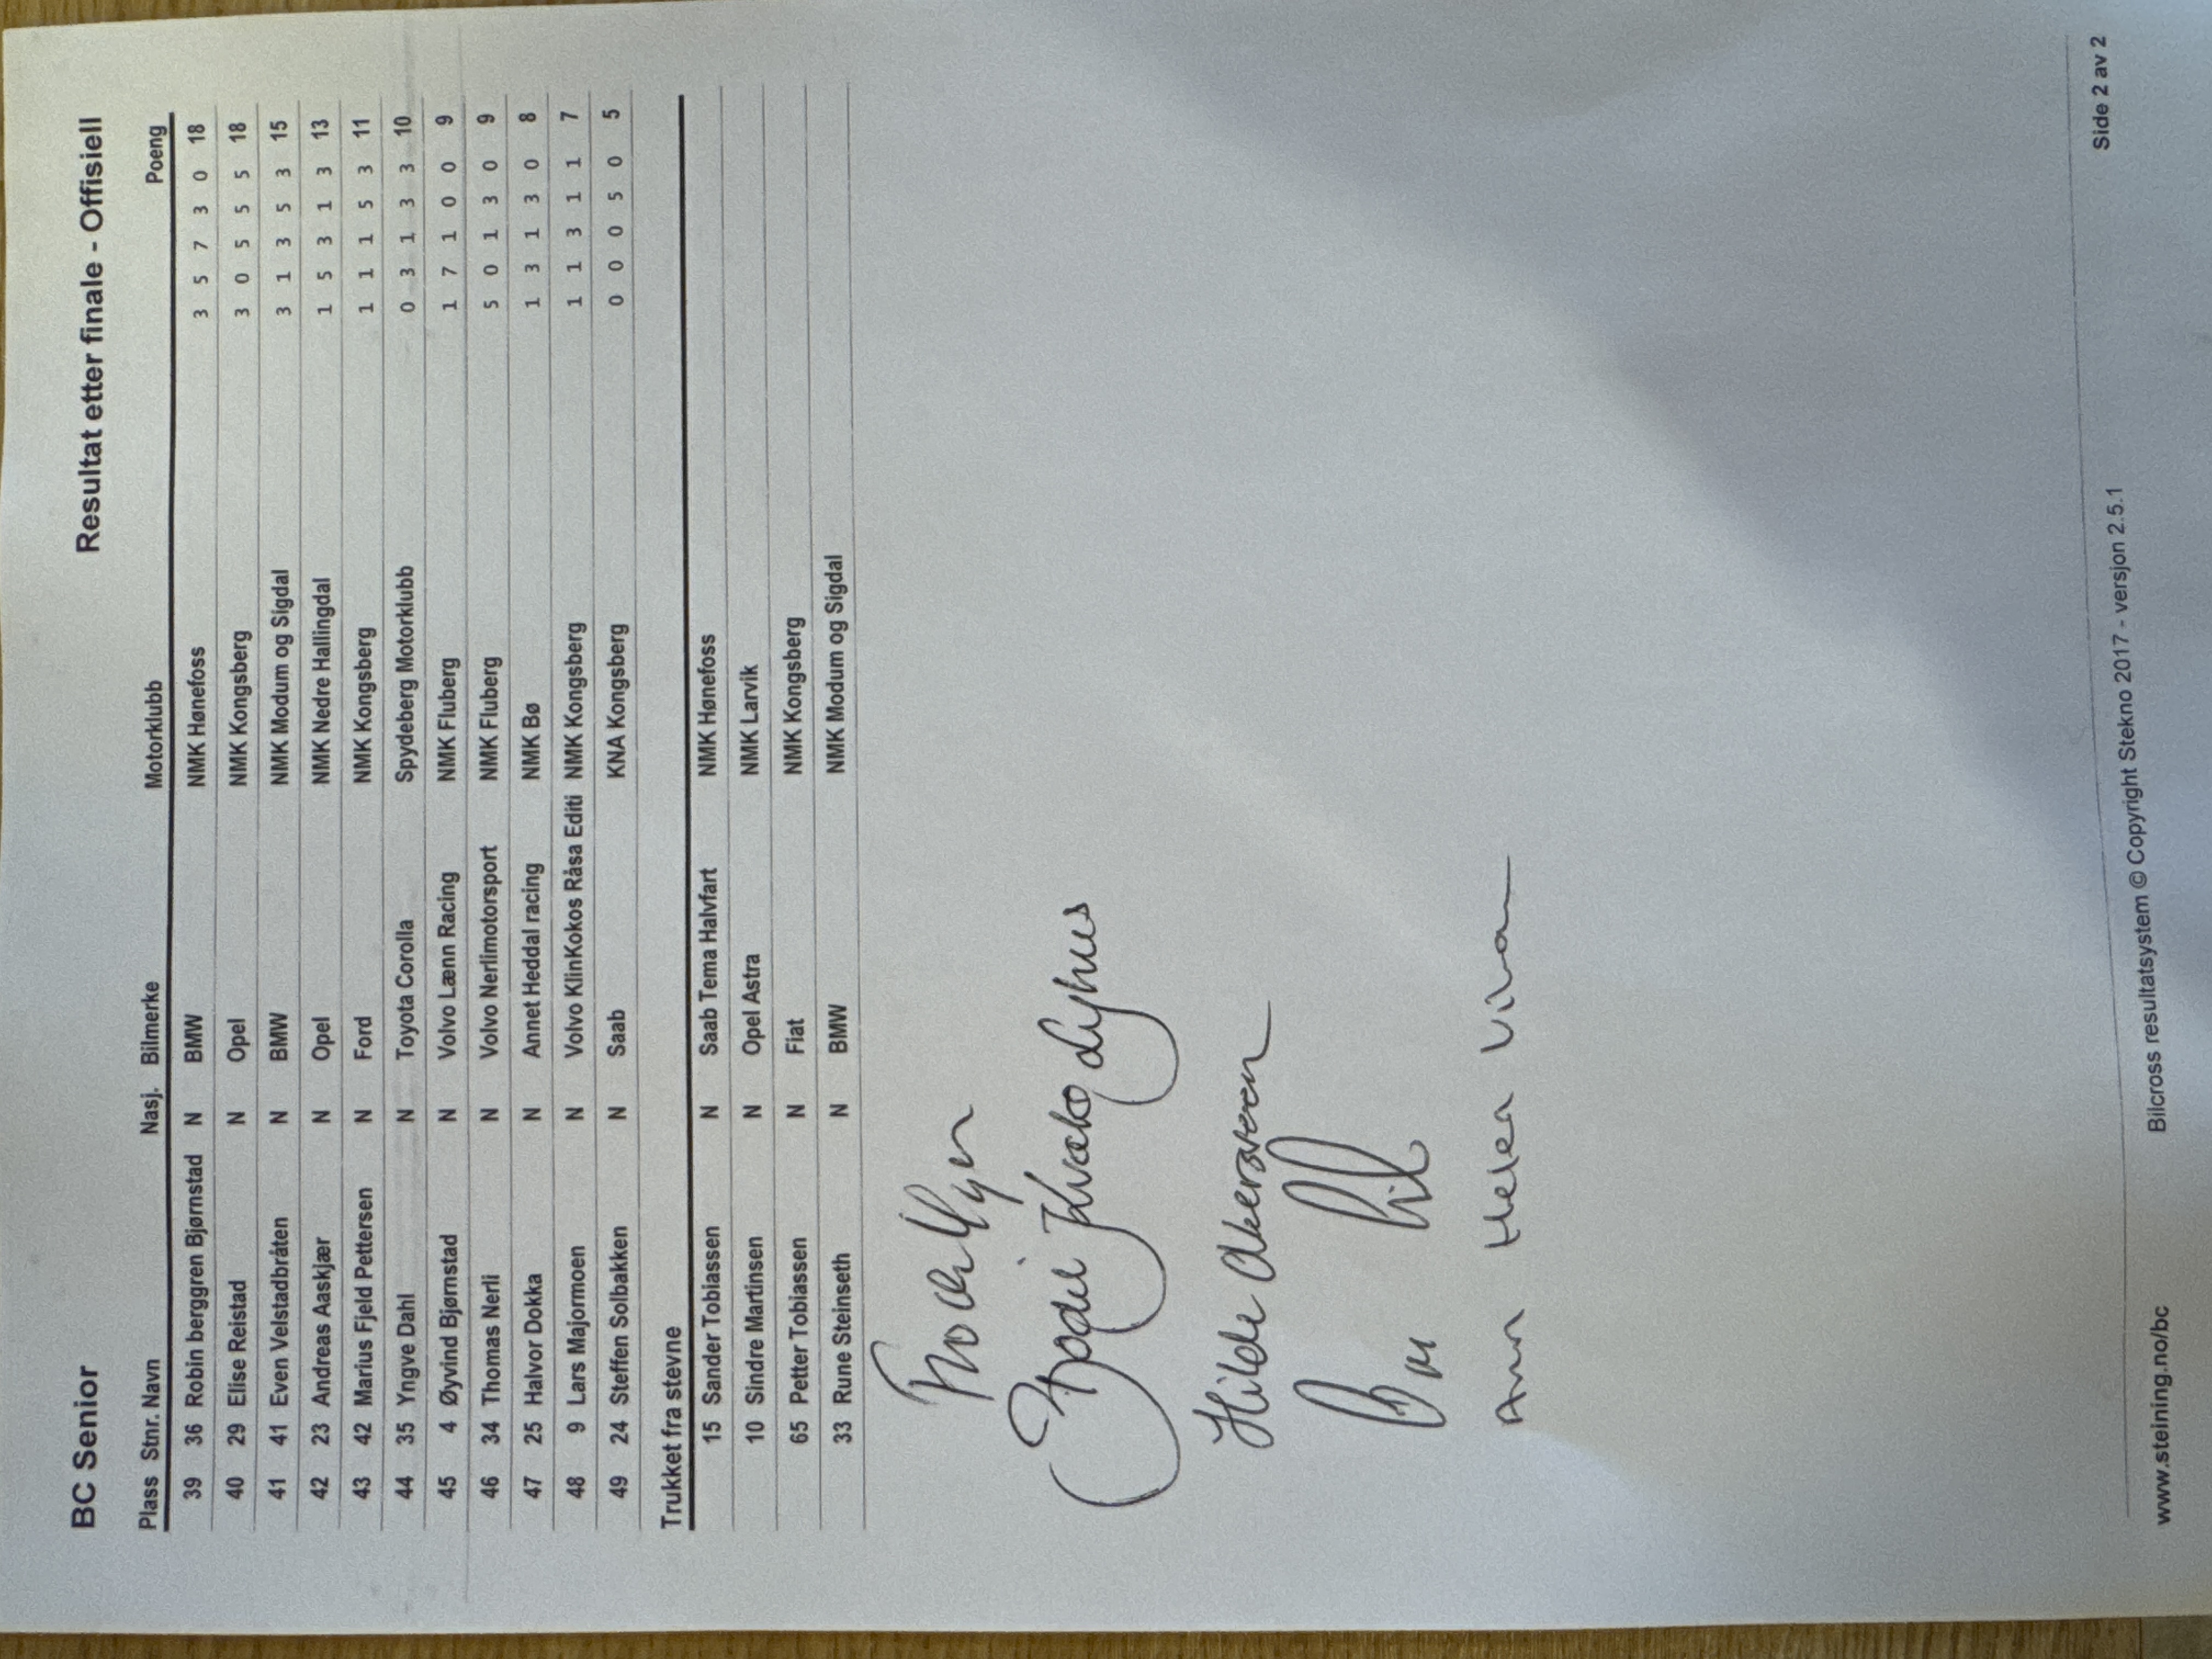 BC Senior Resultat etter finale - Offisiell
Plass Stnr. Navn Nasj. Bilmerke Motorklubb Poeng
39 36 Robin berggren Bjørnstad N BMW NMK Hønefoss 3 5 7 3 0 18
40 29 Elise Reistad N Opel NMK Kongsberg 3 0 5 5 5 18
41 41 Even Velstadbråten N BMW NMK Modum og Sigdal 3 1 3 5 3 15
42 23 Andreas Aaskjær N Opel NMK Nedre Hallingdal 1 5 3 1 3 13
43 42 Marius Fjeld Pettersen N Ford NMK Kongsberg 1 1 1 5 3 11
44 35 Yngve Dahl N Toyota Corolla Spydeberg Motorklubb 0 3 1 3 3 10
45 4 Øyvind Bjørnstad N Volvo Lænn Racing NMK Fluberg 1 7 1 0 0 9
46 34 Thomas Nerli N Volvo Nerlimotorsport NMK Fluberg 5 0 1 3 0 9
47 25 Halvor Dokka N Annet Heddal racing NMK Bø 1 3 1 3 0 8
48 9 Lars Majormoen N Volvo KlinKokos Råsa Editi NMK Kongsberg 1 1 3 1 1 7
49 24 Steffen Solbakken N Saab KNA Kongsberg 0 0 0 5 0 5
Trukket fra stevne
15 Sander Tobiassen N Saab Tema Halvfart NMK Hønefoss
10 Sindre Martinsen N Opel Astra NMK Larvik
65 Petter Tobiassen N Fiat NMK Kongsberg
33 Rune Steinseth N BMW NMK Modum og Sigdal
Hilde Akerstrøm
Ann Helen
Side 2 av 2
www.steining.no/bc Bilcross resultatsystem © Copyright Stekno 2017 - versjon 2.5.1